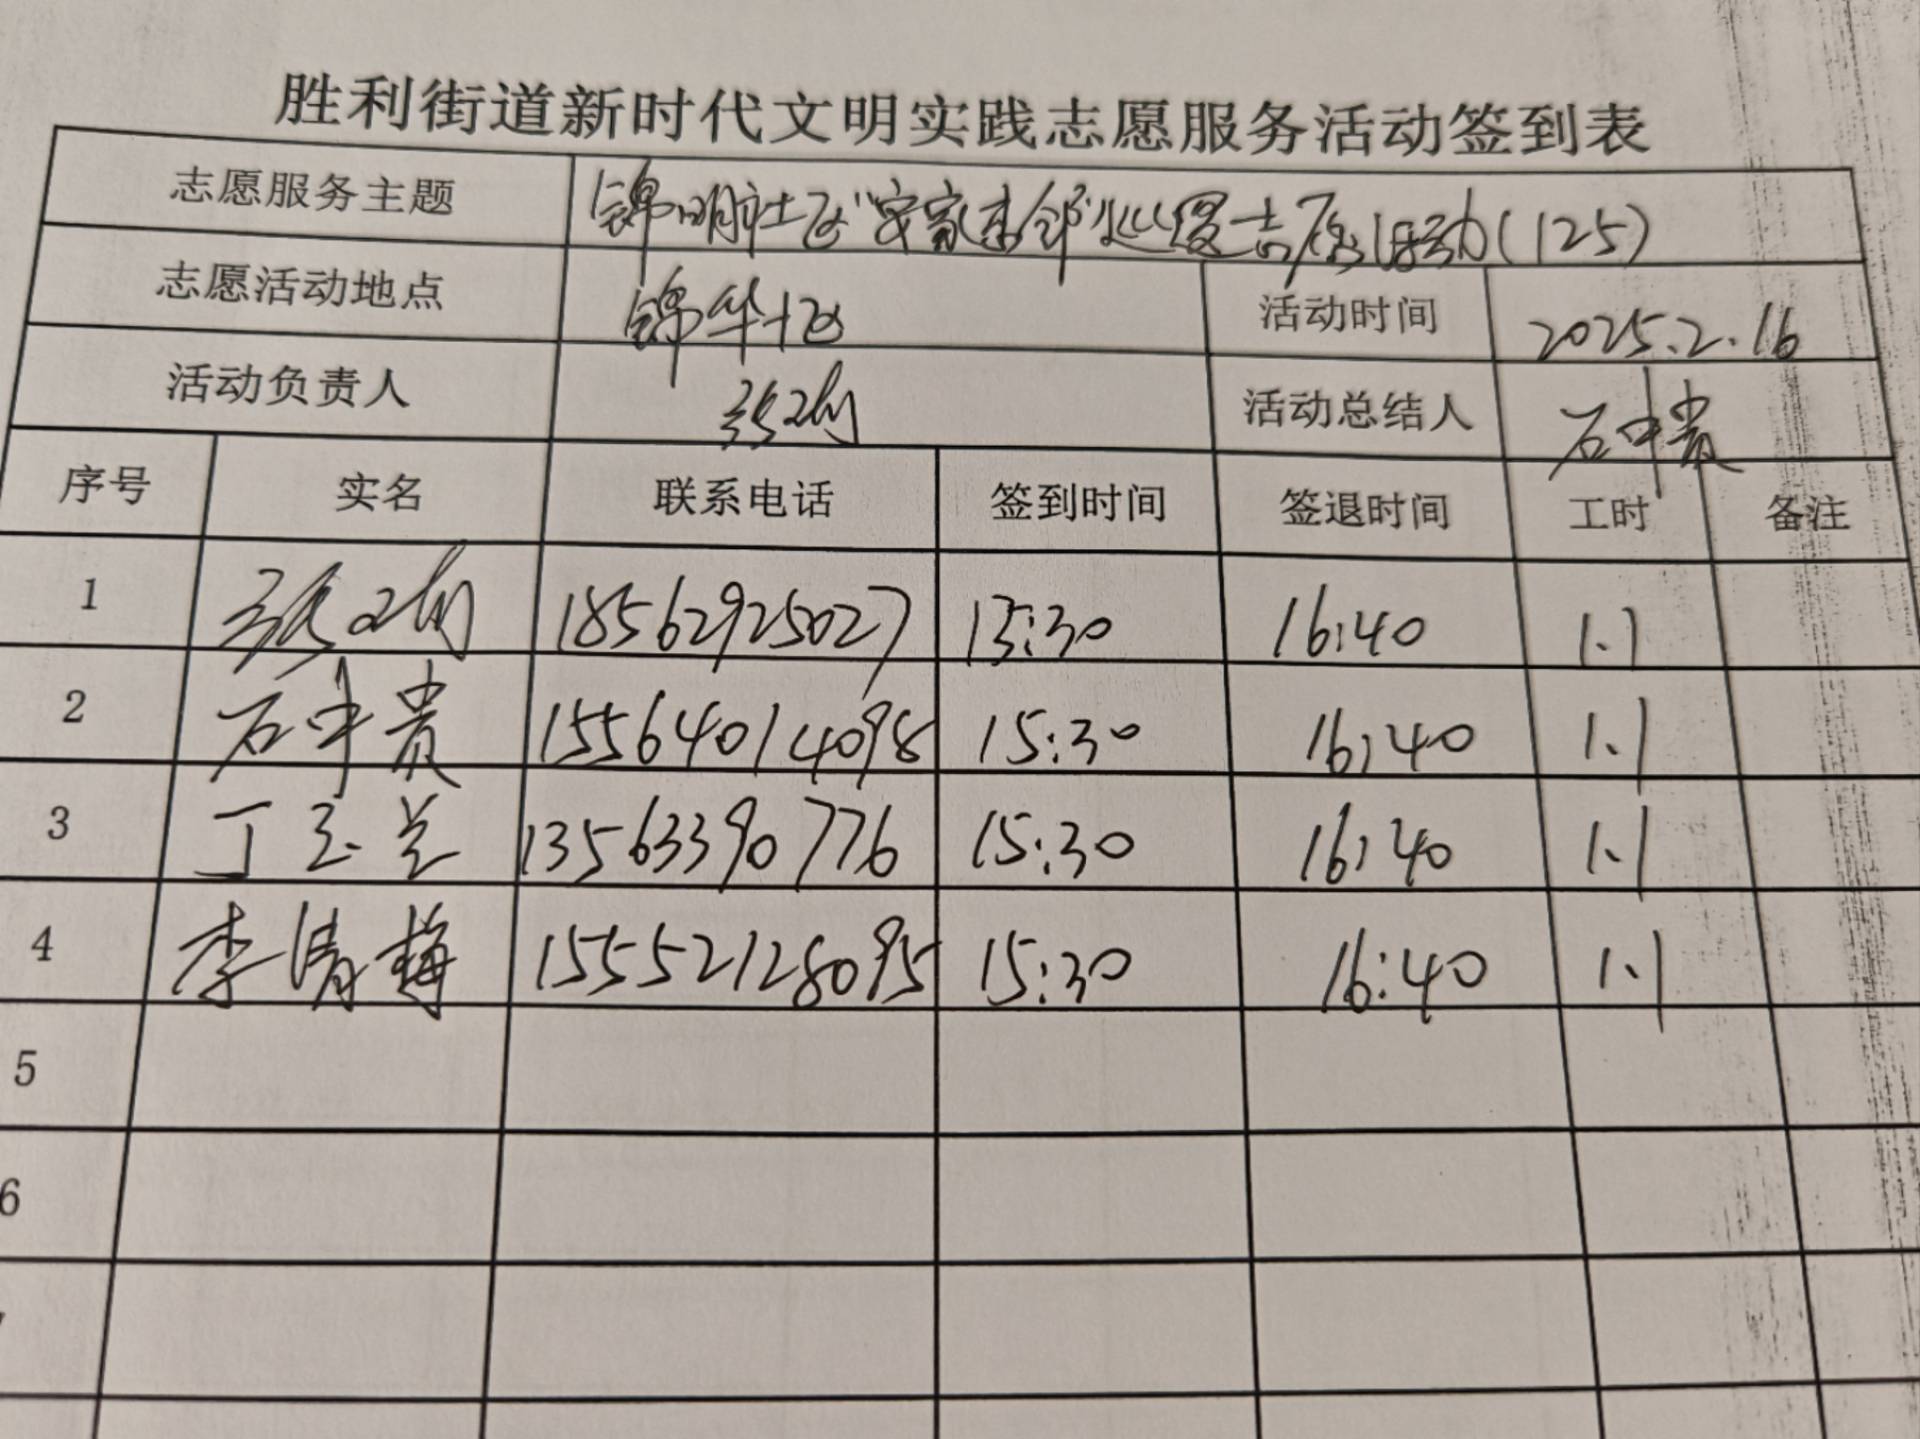 胜利街道新时代文明实践志愿服务活动签到表
志愿服务主题 锦明社区“安家东邻”巡逻志愿活动(125)
志愿活动地点 锦华十区 活动时间 2025.2.16
活动负责人 活动总结人 石中贵
序号 实名 联系电话 签到时间 签退时间 工时 备注
1 18562925027 15:30 16:40 1.1
2 石中贵 15564014098 15:30 16:40 1.1
3 丁玉兰 13563390776 15:30 16:40 1.1
4 李清梅 15552128095 15:30 16:40 1.1
5
6